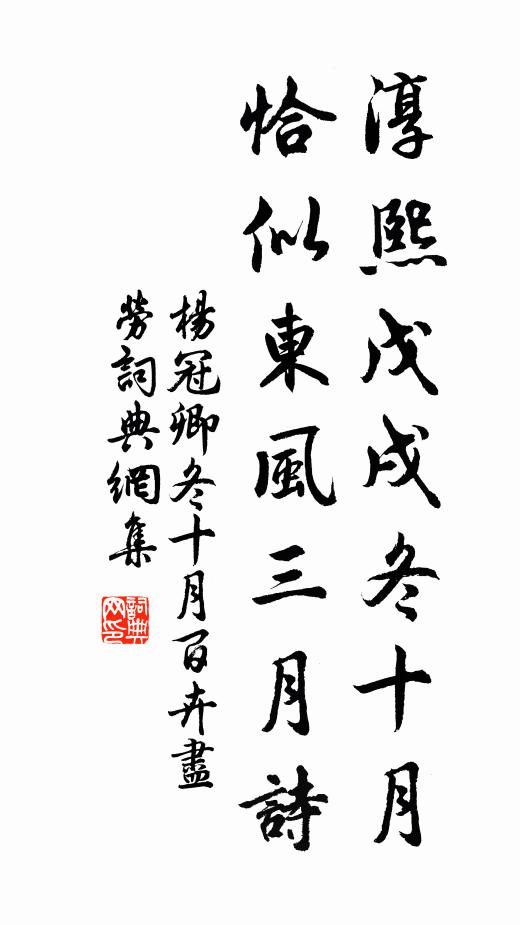 淳熙戊戌冬十月
恰似東風三月詩
楊冠卿冬十月百卉盡
勞詞典網集
詞典网印